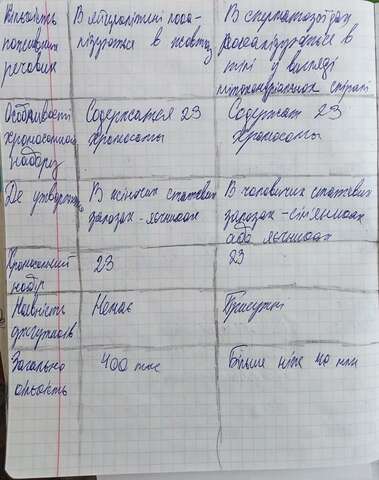 Кількість
поживних
речовин
В яйцеклітині лока-
лізуються в жовтку
В сперматозоїдах
локалізуються в
тілі у вигляді
мітохондріальної спіралі
Особливості
хромосомного
набору
Содержатся 23
хромосомы
Содержат 23
хромосомы
Де утворюються
В жіночих статевих
залозах - яєчниках
В чоловічих статевих
залозах - сім'яниках
або яєчниках
Хромосомний
набір
23
23
Наявність
джгутиків
Немає
Присутні
Загальна
кількість
400 тис
Більше ніж 40 млн